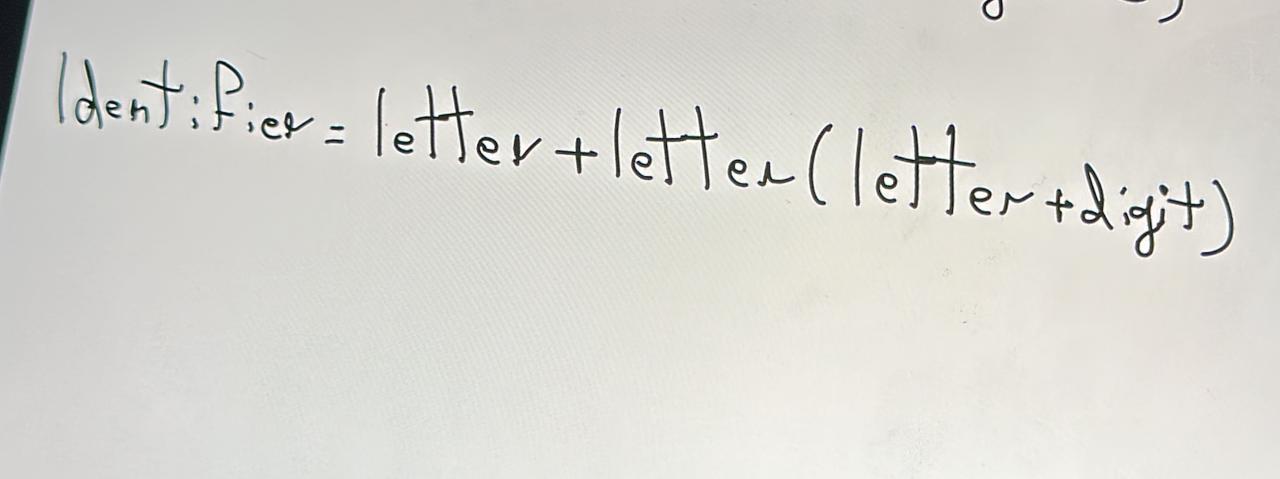 Identifier = letter + letter (letter + digit)